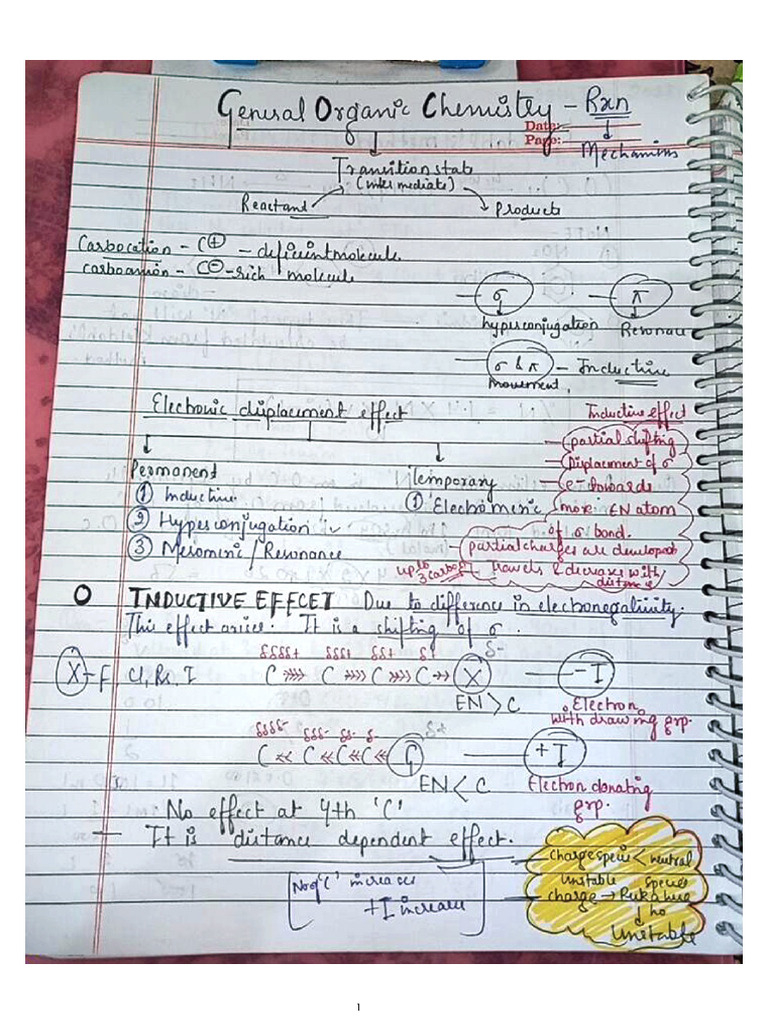 General Organic Chemistry - Rxn
Date:
Page:
Mechanism
Transition state
(intermediate)
Reactant
Products
Carbocation - C⊕ - deficient molecule
carboanion - C⊖ - rich molecule
σ
π
hyperconjugation
Resonance
σ & π - Inductive
movement
Electronic displacement effect
Permanent
① Inductive
② Hyperconjugation
③ Mesomeric / Resonance
Temporary
① Electromeric
Inductive effect
- partial shifting
- Displacement of σ
- e- towards
- more EN atom
of σ bond.
- partial charges are developed
upto 3 carbon
- travels & decrease with
distance
O INDUCTIVE EFFCET Due to difference in electronegativity.
This effect arises. It is a shifting of σ.
δδδδ+ δδδ+ δδ+ δ+ δ-
X - F, Cl, Br, I C >>>> C >>>> C >>>> C →> X - I
EN > C
Electron
withdrawing grp.
δδδδ- δδδ- δδ- δ- δ+
C << C << C << C << G +I
EN < C
Electron donating
grp.
No effect at 4th 'C'
- It is distance dependent effect.
No of 'C' increases
+I increase
- charge specie < neutral
unstable species
- charge → Ruka hua
ho
Unstable
1